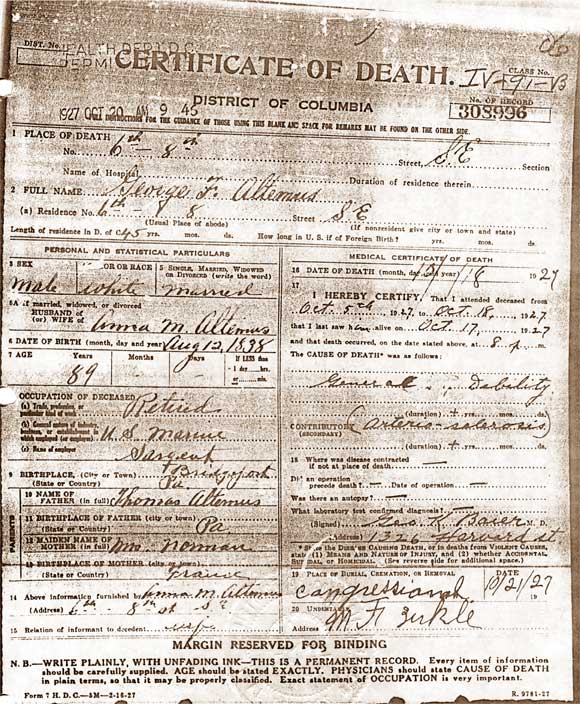 DIST. No.
HEALTH DEPT. D.C.
PERMI
CERTIFICATE OF DEATH.
IV-91-B
CLASS No.
1927 OCT 20 AM 9 45
DISTRICT OF COLUMBIA
No. OF RECORD
308996
INSTRUCTIONS FOR THE GUIDANCE OF THOSE USING THIS BLANK AND SPACE FOR REMARKS MAY BE FOUND ON THE OTHER SIDE.
1 PLACE OF DEATH
No. 6th - 8th Street, S.E Section
Name of Hospital Duration of residence therein
2 FULL NAME George F. Altemus
(a) Residence No. 6 - 8 Street S E
(Usual Place of abode) (If nonresident give city or town and state)
Length of residence in D. of C. 45 yrs. mos. ds. How long in U. S. if of Foreign Birth? yrs. mos. ds.
PERSONAL AND STATISTICAL PARTICULARS
3 SEX
OR RACE
5 SINGLE, MARRIED, WIDOWED
OR DIVORCED (write the word)
male white married
5A If married, widowed, or divorced
HUSBAND OF
(or) WIFE of
Anna M. Altemus
6 DATE OF BIRTH (month, day and year) Aug 12, 1838
7 AGE Years Months Days If LESS than
1 day
hrs.
or min.
89
OCCUPATION OF DECEASED
(a) Trade, profession, or
particular kind of work
Retired
(b) General nature of industry,
business, or establishment in
which employed (or employer)
U.S. Marine
(c) Name of employer
Sargent
9 BIRTHPLACE, (City or Town) Bridgeport
(State or Country) Pa
PARENTS
10 NAME OF
FATHER (in full) Thomas Altemus
11 BIRTHPLACE OF FATHER (city or town)
(State or Country) Pa
12 MAIDEN NAME OF
MOTHER (in full) Norman
13 BIRTHPLACE OF MOTHER (city or town)
(State or Country)
14 Above information furnished by Anna M. Altemus
(Address) 6th 8th st S E
15 Relation of informant to decedent wife
MEDICAL CERTIFICATE OF DEATH
16 DATE OF DEATH (month, day year) 18 1927
17
I HEREBY CERTIFY, That I attended deceased from
Oct 5th 1927, to Oct 18, 1927
that I last saw alive on Oct 17, 1927
and that death occurred, on the date stated above, at 8 p m.
The CAUSE OF DEATH* was as follows:
General Debility
(duration) yrs. mos. ds.
CONTRIBUTORY
(SECONDARY)
(arterio-sclerosis)
(duration) yrs. mos. ds.
18 Where was disease contracted
if not at place of death
Did an operation
precede death? Date of operation
Was there an autopsy?
What laboratory test confirmed diagnosis?
(Signed) Geo. K. Baier M. D.
(Address) 1326 Harvard st
* State the DISEASE CAUSING DEATH, or in deaths from VIOLENT CAUSES,
state (1) MEANS AND NATURE OF INJURY, and (2) whether ACCIDENTAL,
SUICIDAL, or HOMICIDAL. (See reverse side for additional space.)
19 PLACE OF BURIAL, CREMATION, OR REMOVAL DATE
Congressional 10/21/27
20 UNDERTAKER
M. F. Zirkle
Address
MARGIN RESERVED FOR BINDING
N. B.—WRITE PLAINLY, WITH UNFADING INK—THIS IS A PERMANENT RECORD. Every item of information
should be carefully supplied. AGE should be stated EXACTLY. PHYSICIANS should state CAUSE OF DEATH
in plain terms, so that it may be properly classified. Exact statement of OCCUPATION is very important.
Form 7 H. D. C.—5M—2-16-27
R. 9781-27